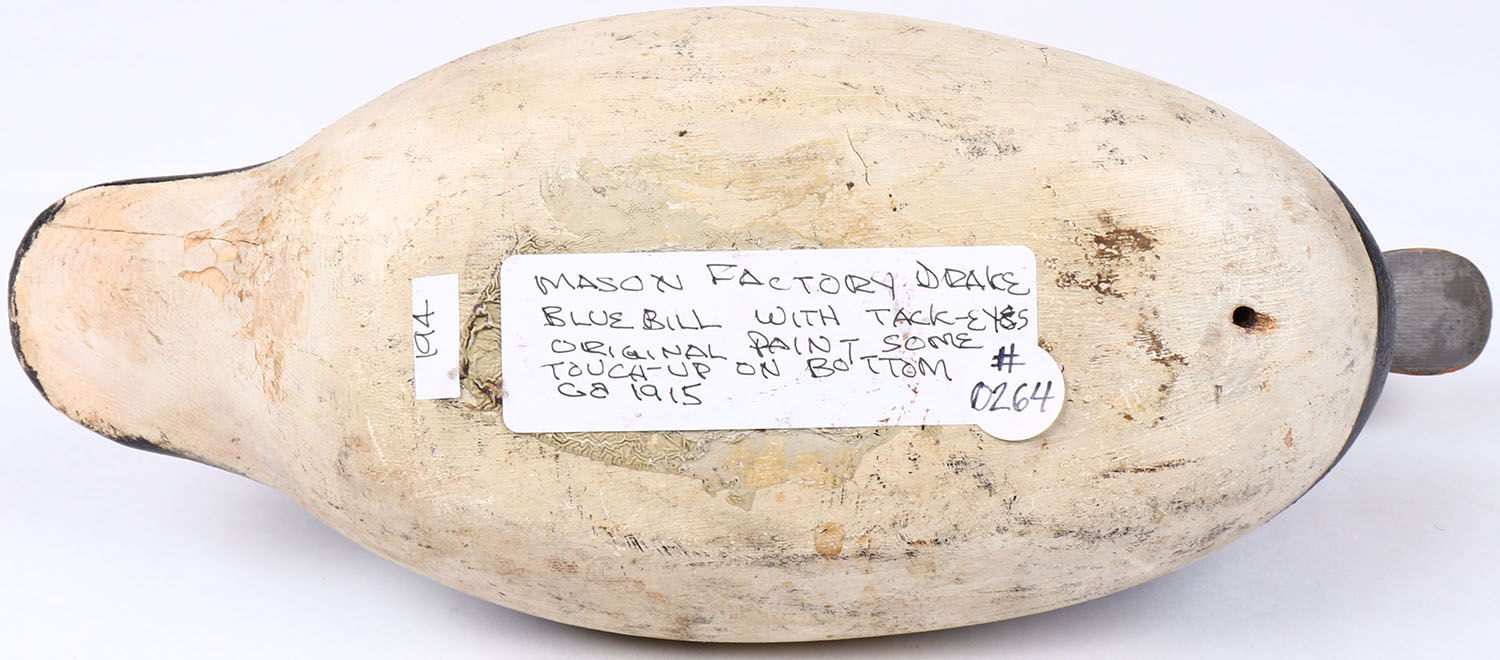 194
MASON FACTORY DRAKE
BLUE BILL WITH TACK-EYES
ORIGINAL PAINT SOME
TOUCH-UP ON BOTTOM
1915
#
0264